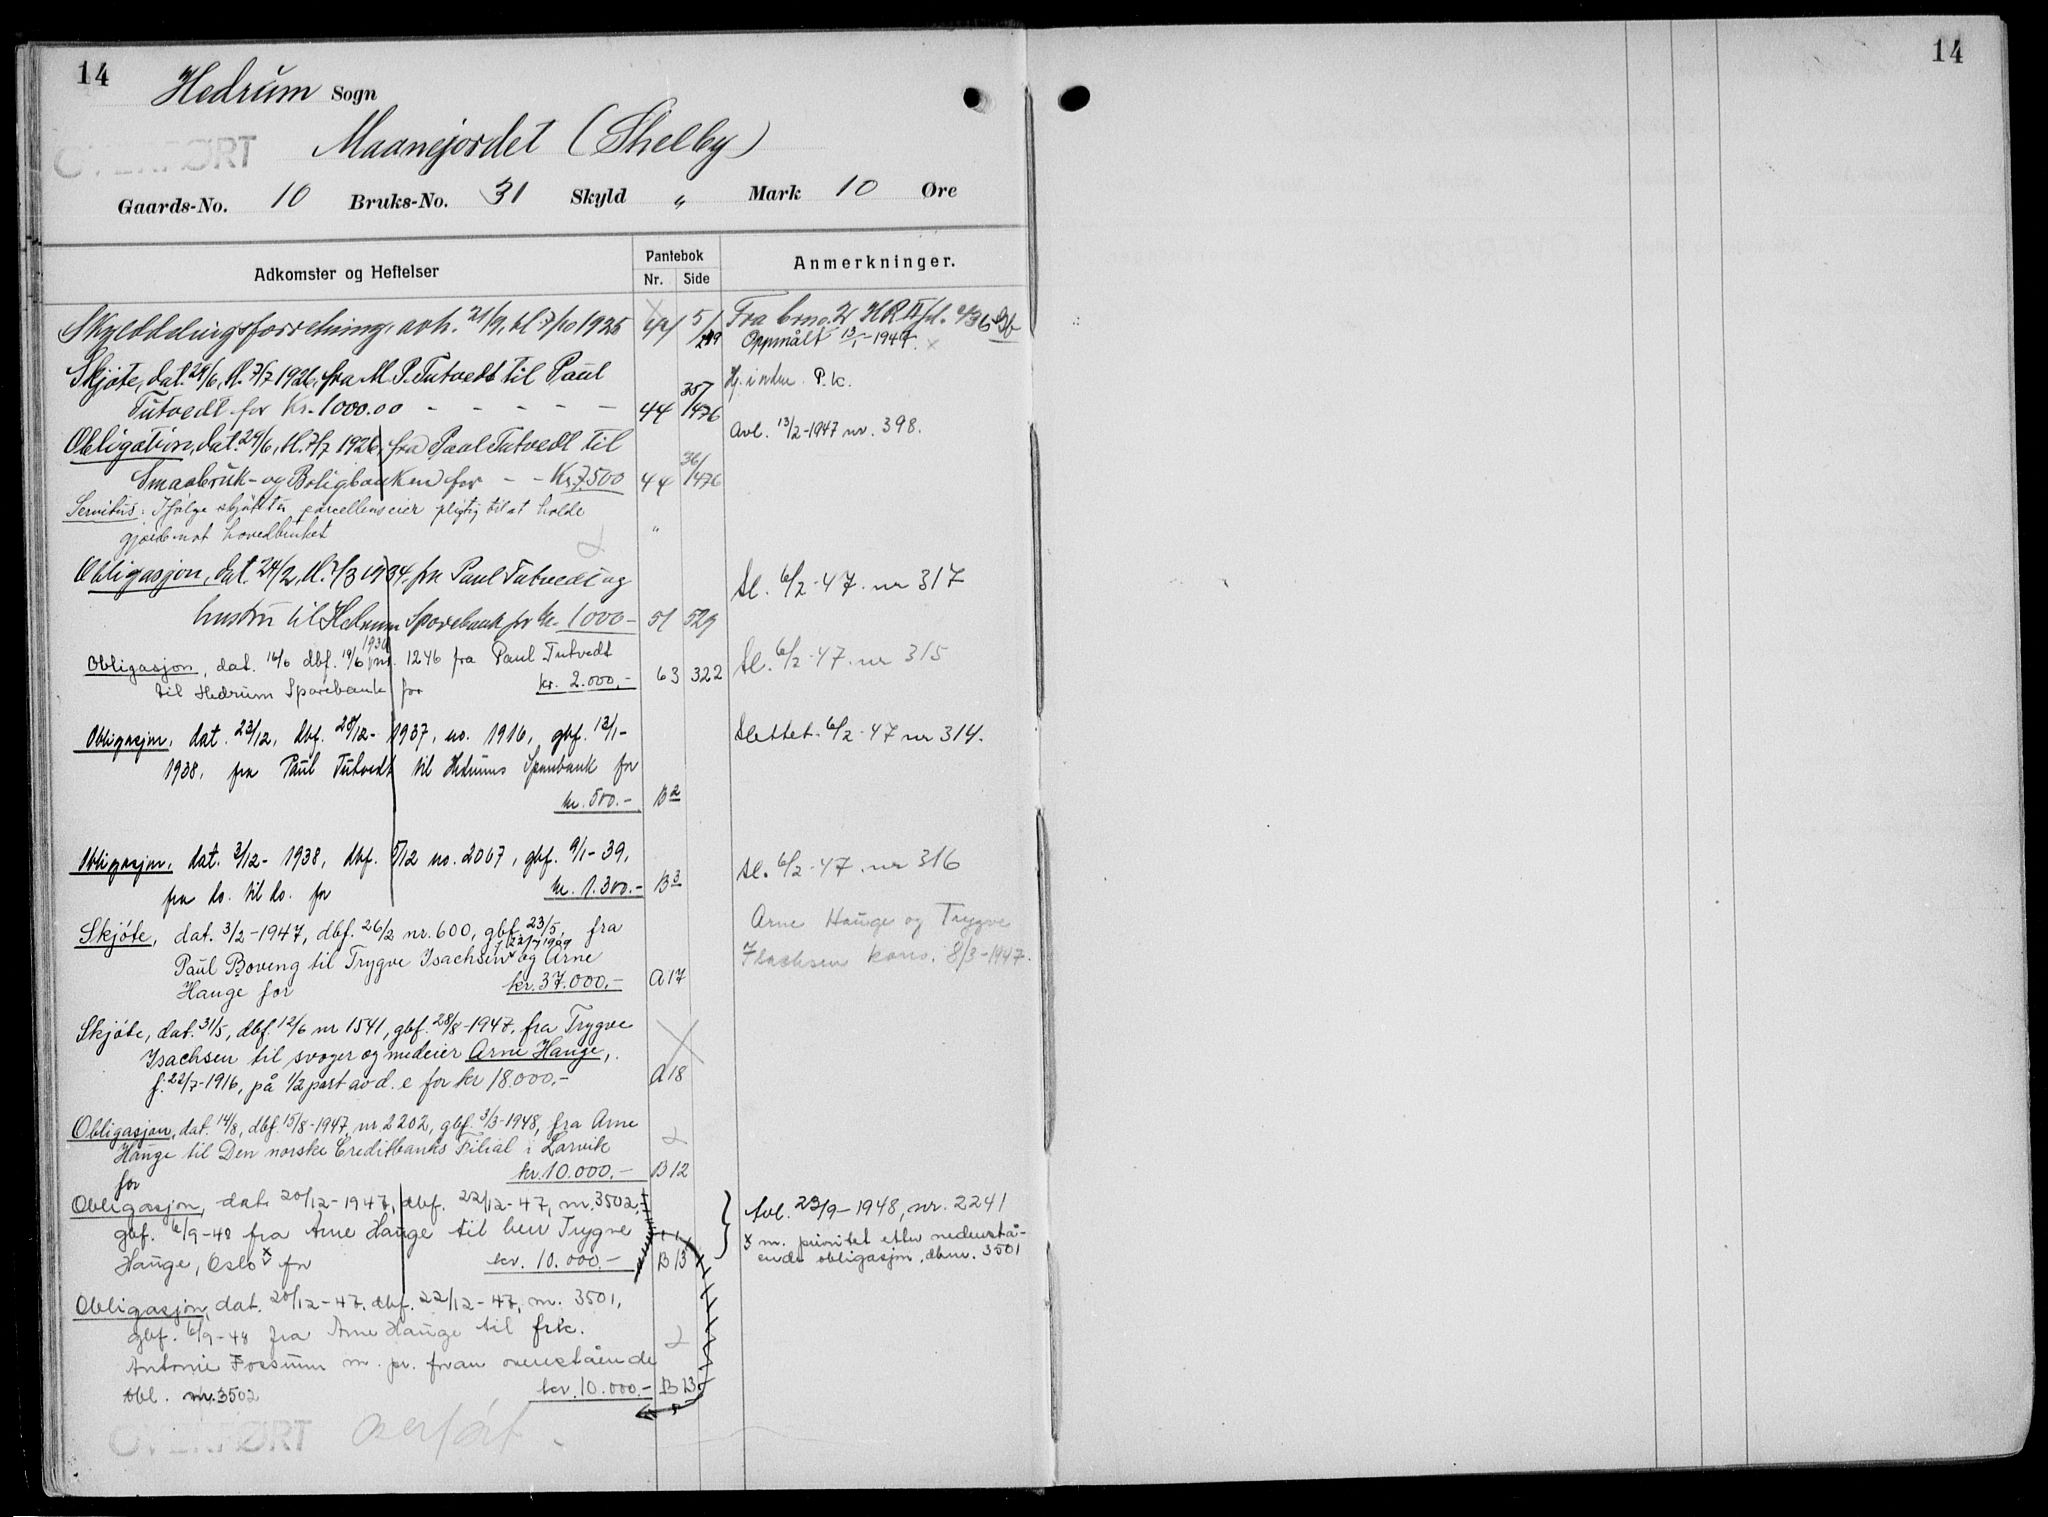 14
Hedrum Sogn
OVERFØRT
Maanejordet (Shelby)
Gaards-No. 10 Bruks-No. 31 Skyld " Mark 10 Øre
Adkomster og Heftelser
Pantebok
Nr. Side
Anmerkninger.
Skylddelingsforretning, avh. 21/9, tl. 7/10 1925
5/
Fra brno. 2
Oppmålt 13/1-1947.
Skjøte, dat. 29/6, tl. 7/7 1926, fra M. P. Tutvedt til Paul
Tutvedt for Kr. 1000.00 - - - - - 44 35/476
P. k.
Obligation, dat. 29/6, tl. 7/7 1926, fra Paul Tutvedt til
Avl. 13/2-1947 nr. 398.
Smaabruk- og Boligbanken for - - Kr. 7.500 44 36/476
Servitus: Ifølge skjøtet er parcellens eier pligtig til at holde
gjærde mot hovedbruket "
Obligasjon, dat. 24/2, tl. 1/3 1934, fra Paul Tutvedt og
sl. 6/2-47. nr 317
hustru til Hedrum Sparebank for kr. 1000- 51 529
Obligasjon, dat. 16/6 dbf. 19/6 no. 1246 fra Paul Tutvedt
til Hedrum Sparebank for kr. 2.000,- 63 322
sl. 6/2-47. nr 315
Obligasjon, dat. 23/12, dbf. 28/12-1937, no. 1916, gbf. 13/1-
slettet. 6/2-47 nr 314.
1938, fra Paul Tutvedt til Hedrums Sparebank for
kr. 500.- B2
Obligasjon, dat. 3/12-1938, dbf. 5/12 no. 2067, gbf. 9/1-39,
sl. 6/2-47. nr 316
fra do. til do. for kr. 1.300.- B3
Skjøte, dat. 3/2-1947, dbf. 26/2 nr. 600, gbf. 23/5, fra
Arne Hauge og Trygve
Paul Boveng til Trygve Isachsen f. 22/7 1909 og Arne
Isachsen kons. 8/3-1947.
Hauge for kr. 37.000,- A17
Skjøte, dat. 31/5, dbf. 12/6 nr 1541, gbf. 28/8-1947, fra Trygve
Isachsen til svoger og medeier Arne Hauge,
f. 22/7-1916, på 1/2 part av d. e for kr 18.000,- A18
Obligasjon, dat. 14/8, dbf. 15/8-1947 nr. 2202, gbf. 3/3-1948, fra Arne
Hauge til Den norske Creditbanks Filial i Larvik
for kr. 10.000,- B12
Obligasjon, dat. 20/12-1947, dbf. 22/12-47, nr. 3502,
gbf. 6/9-48 fra Arne Hauge til herr Trygve
Hauge, Oslo x for kr. 10.000.- B13
Avl. 23/9-1948, nr. 2241
x m. prioritet etter nedenstå-
ende obligasjon, dbnr. 3501
Obligasjon, dat. 20/12-47, dbf. 22/12-47, nr. 3501,
gbf. 6/9-48 fra Arne Hauge til frk.
Antonie Fossum m. pr. foran ovenstående
obl. nr. 3502 kr. 10.000.- B13
OVERFØRT overført
14